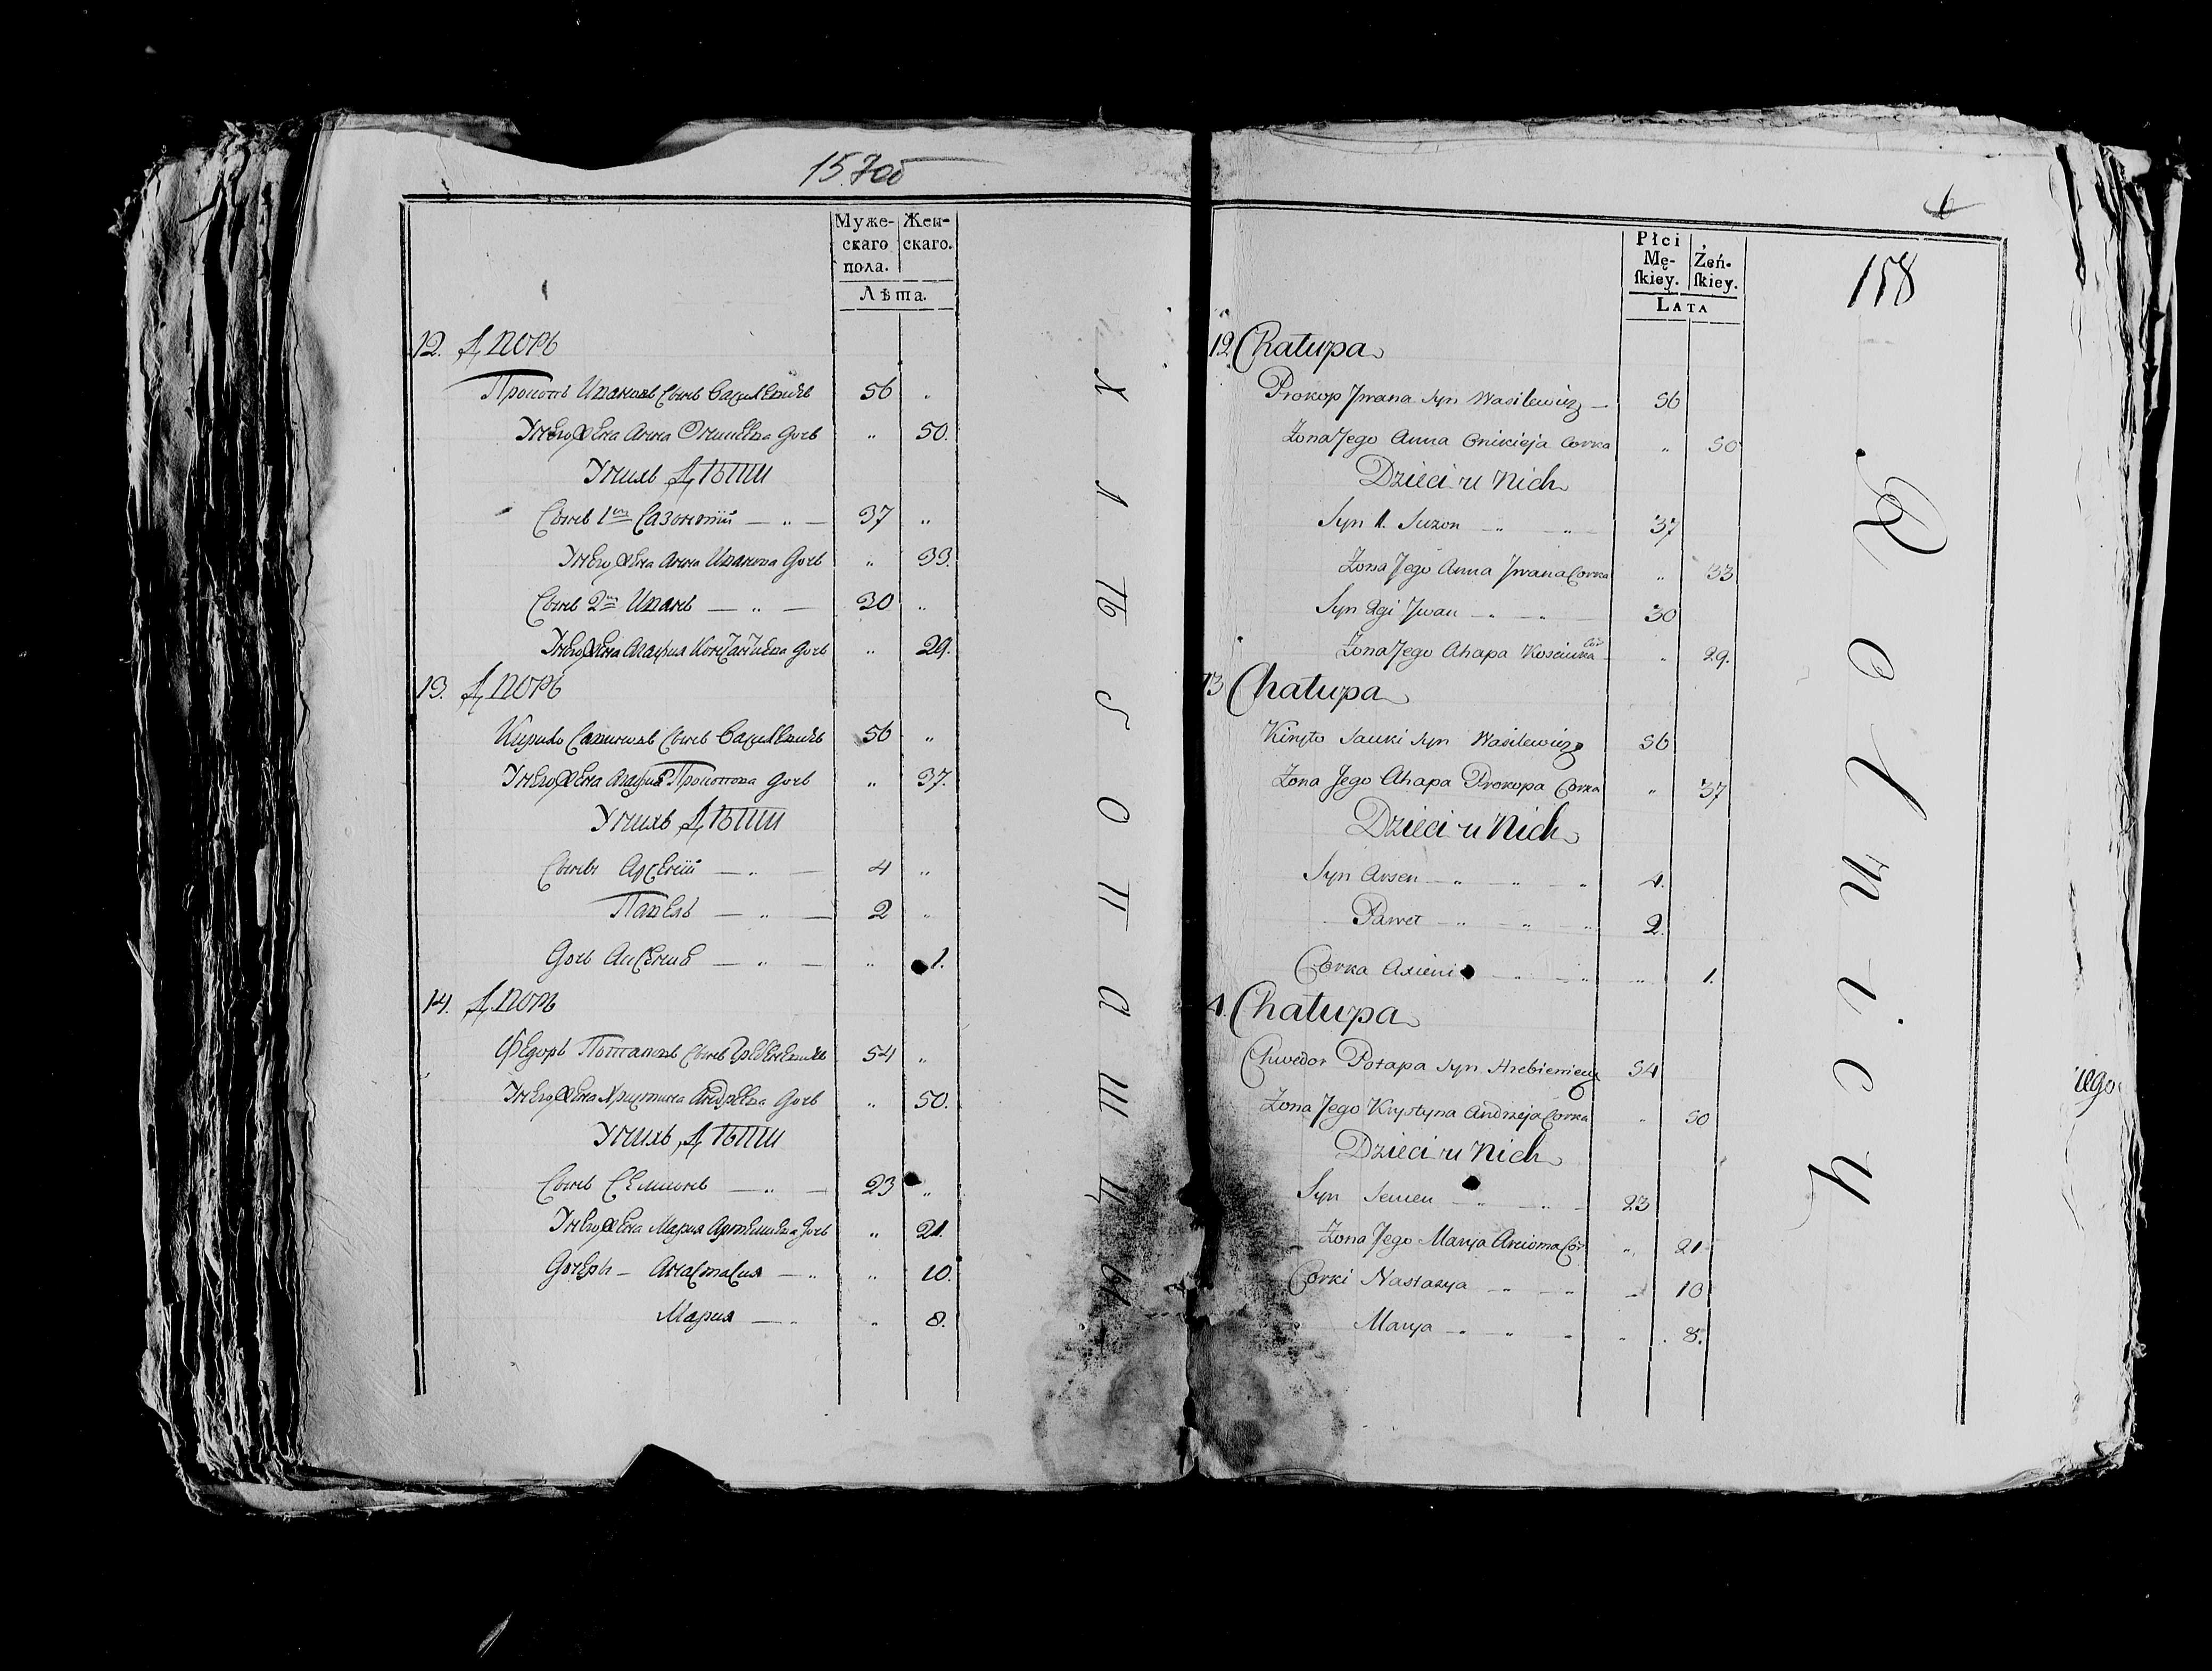 157об
Муже- Жен-
скаго скаго.
пола.
Лѣта.
12. Дворъ
Прокопъ Ивановъ сынъ Василевичъ 56 "
У него жена Анна Оникеева дочь " 50.
У нихъ Дѣти
Сынъ 1й Сазонтій — " — 37 "
У него жена Анна Иванова дочь " 33.
Сынъ 2й Иванъ — " — 30 "
У него жена Агафия дочь " 29.
13. Дворъ
Кирило Савиновъ сынъ Василевичъ 56 "
У него жена Агафия Прокопова дочь " 37.
У нихъ Дѣти
Сыны Арсеній — " — 4 "
Павелъ — " — 2 "
Дочь — " — " 1.
14. Дворъ
Федоръ Потаповъ сынъ 54 "
У него жена Христина Андреева дочь " 50.
У нихъ Дѣти
Сынъ Семионъ — " — 23 "
У него жена Мария Артемиева дочь " 21.
Дочери — Анастасия — " " 10.
Мария — " " 8.
Хлѣбопашцы
6
158
Płci
Mę- Żeń-
ſkiey. ſkiey.
LATA
12 Chałupa
Prokop Jwana syn Wasilewicz — 56
Żona Jego Anna Onikieja Corka " 50
Dzieci u Nich
Syn 1. Suzon " " 37
Żona Jego Anna Jwana Corka " 33
Syn 2gi Jwan " " 30
Żona Jego Ahapa Kosciuka Cor " 29.
13 Chałupa
Kiryło Sauki syn Wasilewicz 56
Żona Jego Ahapa Prokopa Corka " 37
Dzieci u Nich
Syn Arsen — " " " 4.
Paweł — " " " 2.
Corka " " " 1.
4. Chałupa
Chwedor Potapa syn Hrebieniewicz 54
Żona Jego Krystyna Andrzeja Corka " 50
Dzieci u Nich
Syn Semen — " " 23
Żona Jego Marya Arcioma Cor " 21
Corki Nastazya " " 10
Marya " " " " 8.
Rolnicy